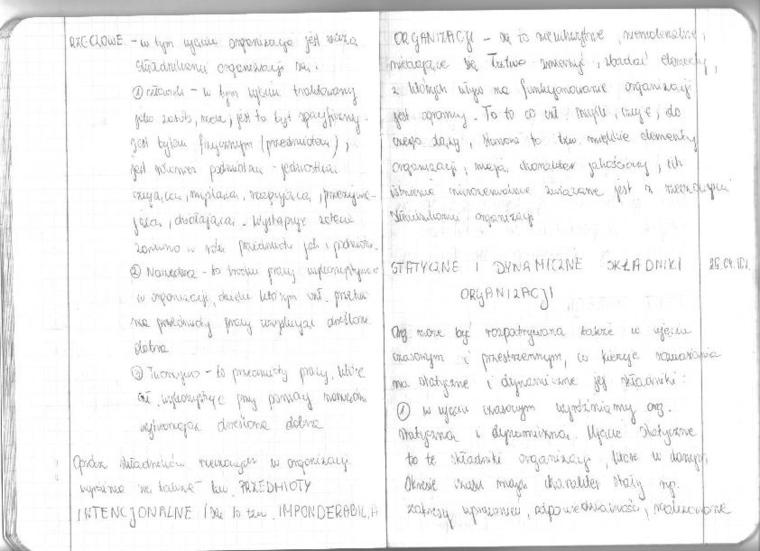 RZECZOWE - w tym ujęciu organizacja jest rzeczą
składnikami organizacji są:
① człowiek - w tym ujęciu traktowany
jako zasób, jest to byt specyficzny.
Jest bytem fizycznym (przedmiotem),
jest również podmiotem - jednostką
czującą, myślącą,
działającą. Występuje zatem
zarówno w roli przedmiotu jak i podmiotu.
② Narzędzia - to środki pracy wykorzystywane
w organizacji, dzięki którym czł.
na przedmioty pracy określone
dobra
③ Tworzywo - to przedmioty pracy, które
czł. wykorzystuje przy pomocy narzędzi
wytwarzając określone dobra
Oprócz składników rzeczowych w organizacji
wyróżnia się także tzw. PRZEDMIOTY
INTENCJONALNE / są to tzw. IMPONDERABILIA
ORGANIZACJI - są to nieuchwytne, niematerialne,
niedające się łatwo zmierzyć, zbadać elementy,
z których wpływ na funkcjonowanie organizacji
jest ogromny. To to co czł. myśli, czuje, do
czego dąży, stanowi to tzw. miękkie elementy
organizacji, mają charakter jakościowy, ich
istnienie nierozerwalnie związane jest z rzeczowymi
składnikami organizacji
STATYCZNE I DYNAMICZNE SKŁADNIKI
ORGANIZACJI
Org może być rozpatrywana także w ujęciu
czasowym i przestrzennym, co kieruje rozważania
na statyczne i dynamiczne jej składniki:
① w ujęciu czasowym wyróżniamy org.
statyczną i dynamiczną. Ujęcie statyczne
to te składniki organizacji, które w danym
okresie czasu mają charakter stały np.
zakresy uprawnień, odpowiedzialności, realizowane